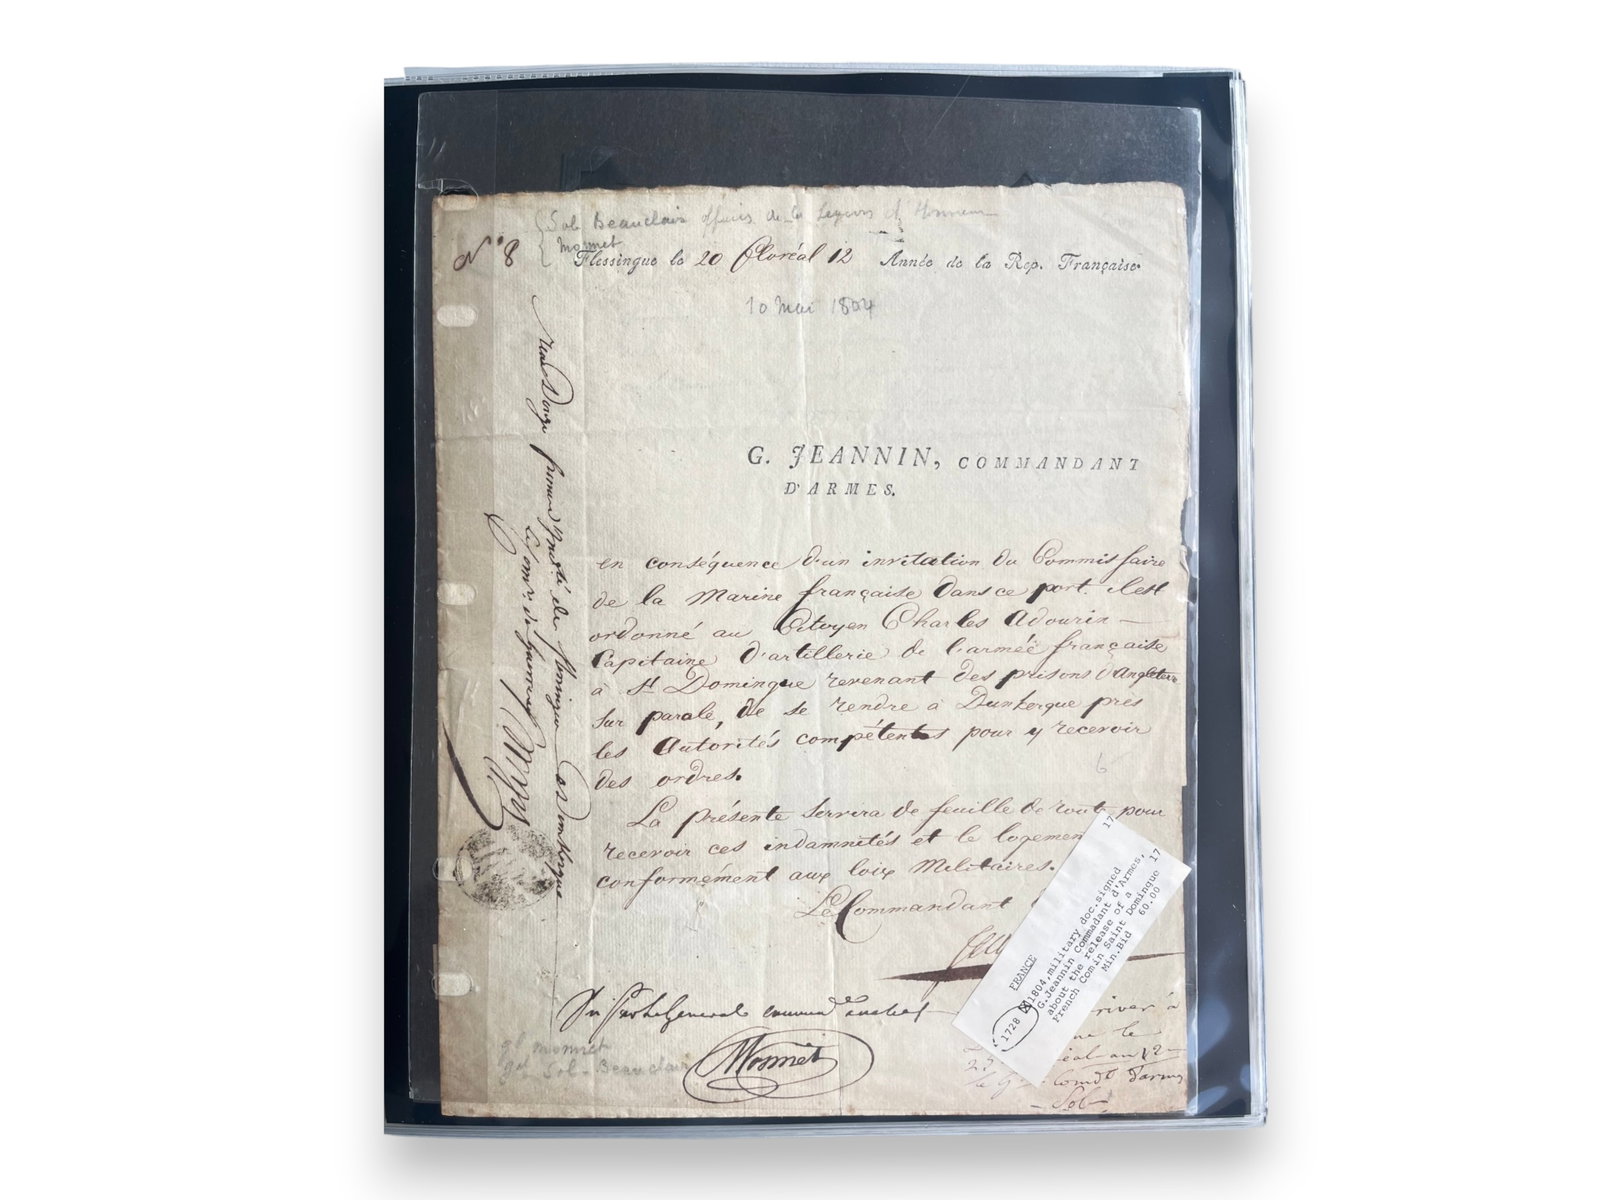 Sol Beauclair officier de la Legion d'Honneur
Monnet
N° 8
Flessingue le 20 floréal 12 Année de la Rep. Française
10 Mai 1804
G. JEANNIN, COMMANDANT
D'ARMES.
en conséquence d'un invitation du Commissaire
de la Marine française dans ce port. il est
ordonné au Citoyen Charles Adourin
Capitaine d'artillerie de l'armée française
à St Domingue revenant des prisons d'Angleterre
sur parole, de se rendre à Dunkerque près
les Autorités compétentes pour y recevoir
des ordres.
La présente servira de feuille de route pour
recevoir ces indemnités et le logement
conformément aux loix Militaires.
Le Commandant
Monnet
gl Monnet
gal Sol-Beauclair
arriver à
le
23 an 12
le Gl Comdt d'armes
Sol
FRANCE
1728 1804,military doc.signed
G.Jeannin Commadant d'Armes,
about the release of a
French Com.in Saint Domingue
Min.Bid 60.00
17
17